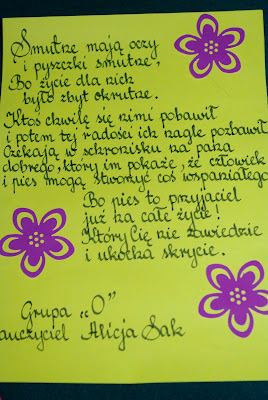 Smutne mają oczy
i pyszczki smutne,
Bo życie dla nich
było zbyt okrutne.
Ktoś chwilę się nimi pobawił
i potem tej radości ich nagle pozbawił
Czekają w schronisku na pana
dobrego, który im pokaże, że człowiek
i pies mogą stworzyć coś wspaniałego
Bo pies to przyjaciel
już na całe życie!
Który Cię nie zawiedzie
i ukocha skrycie.
Grupa „O”
auczyciel Alicja Sak